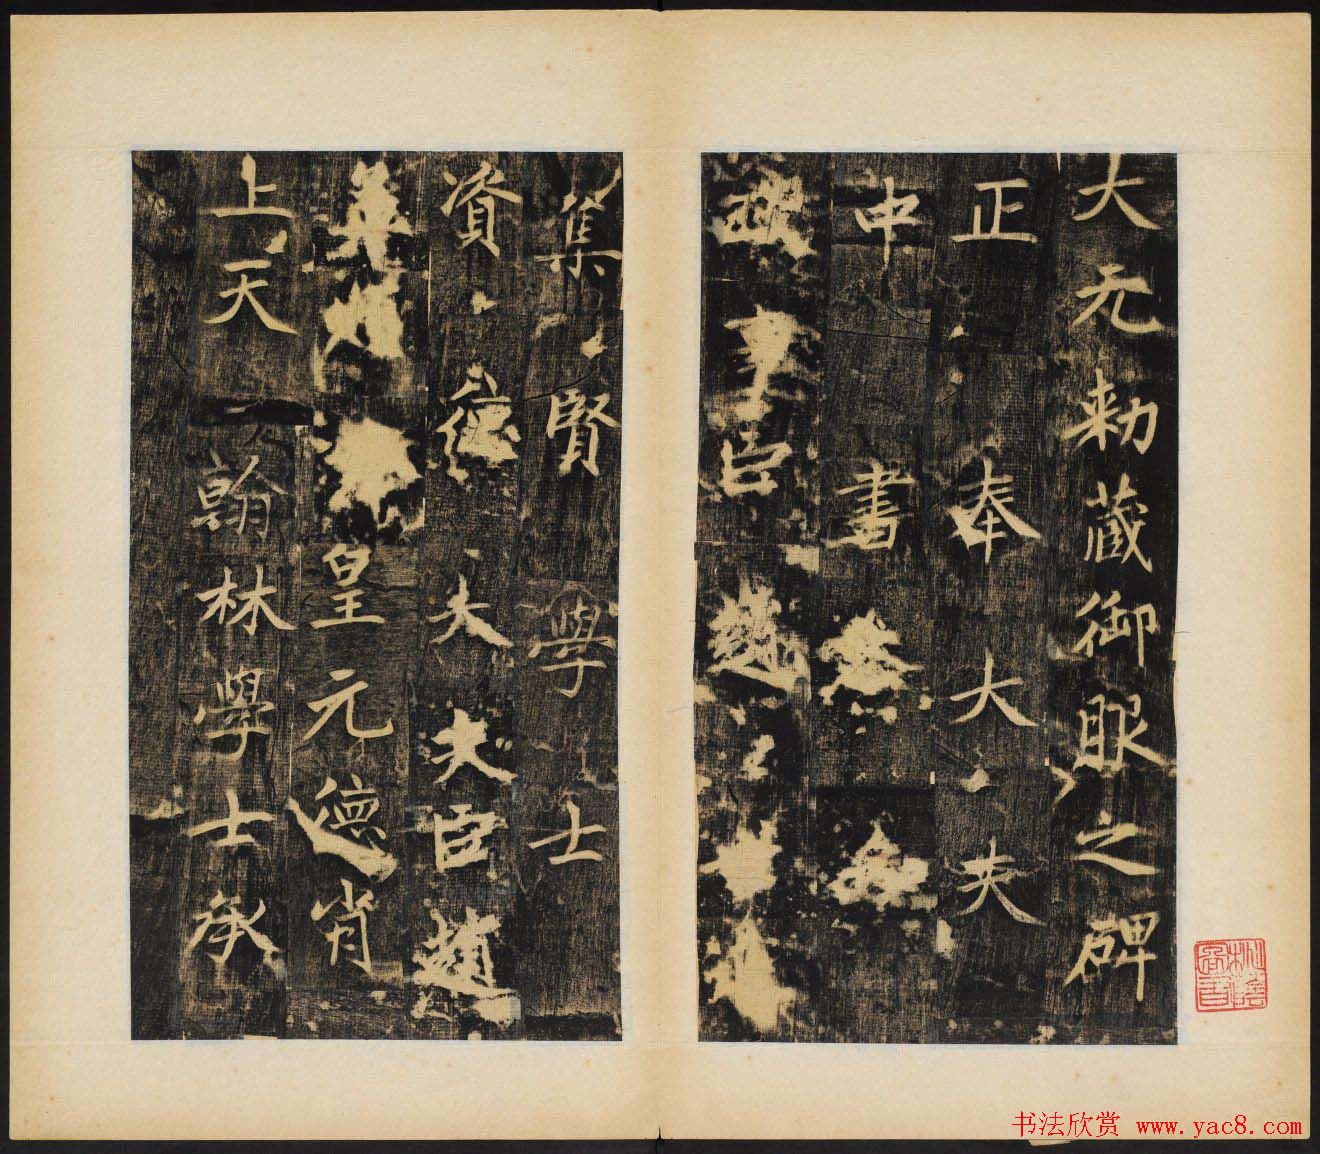 大元勑藏御眼之碑
正奉大夫
中書
事臣趙
集賢學士
資德大夫臣趙
皇元德肖
上天翰林學士承
书法欣赏 www.yac8.com